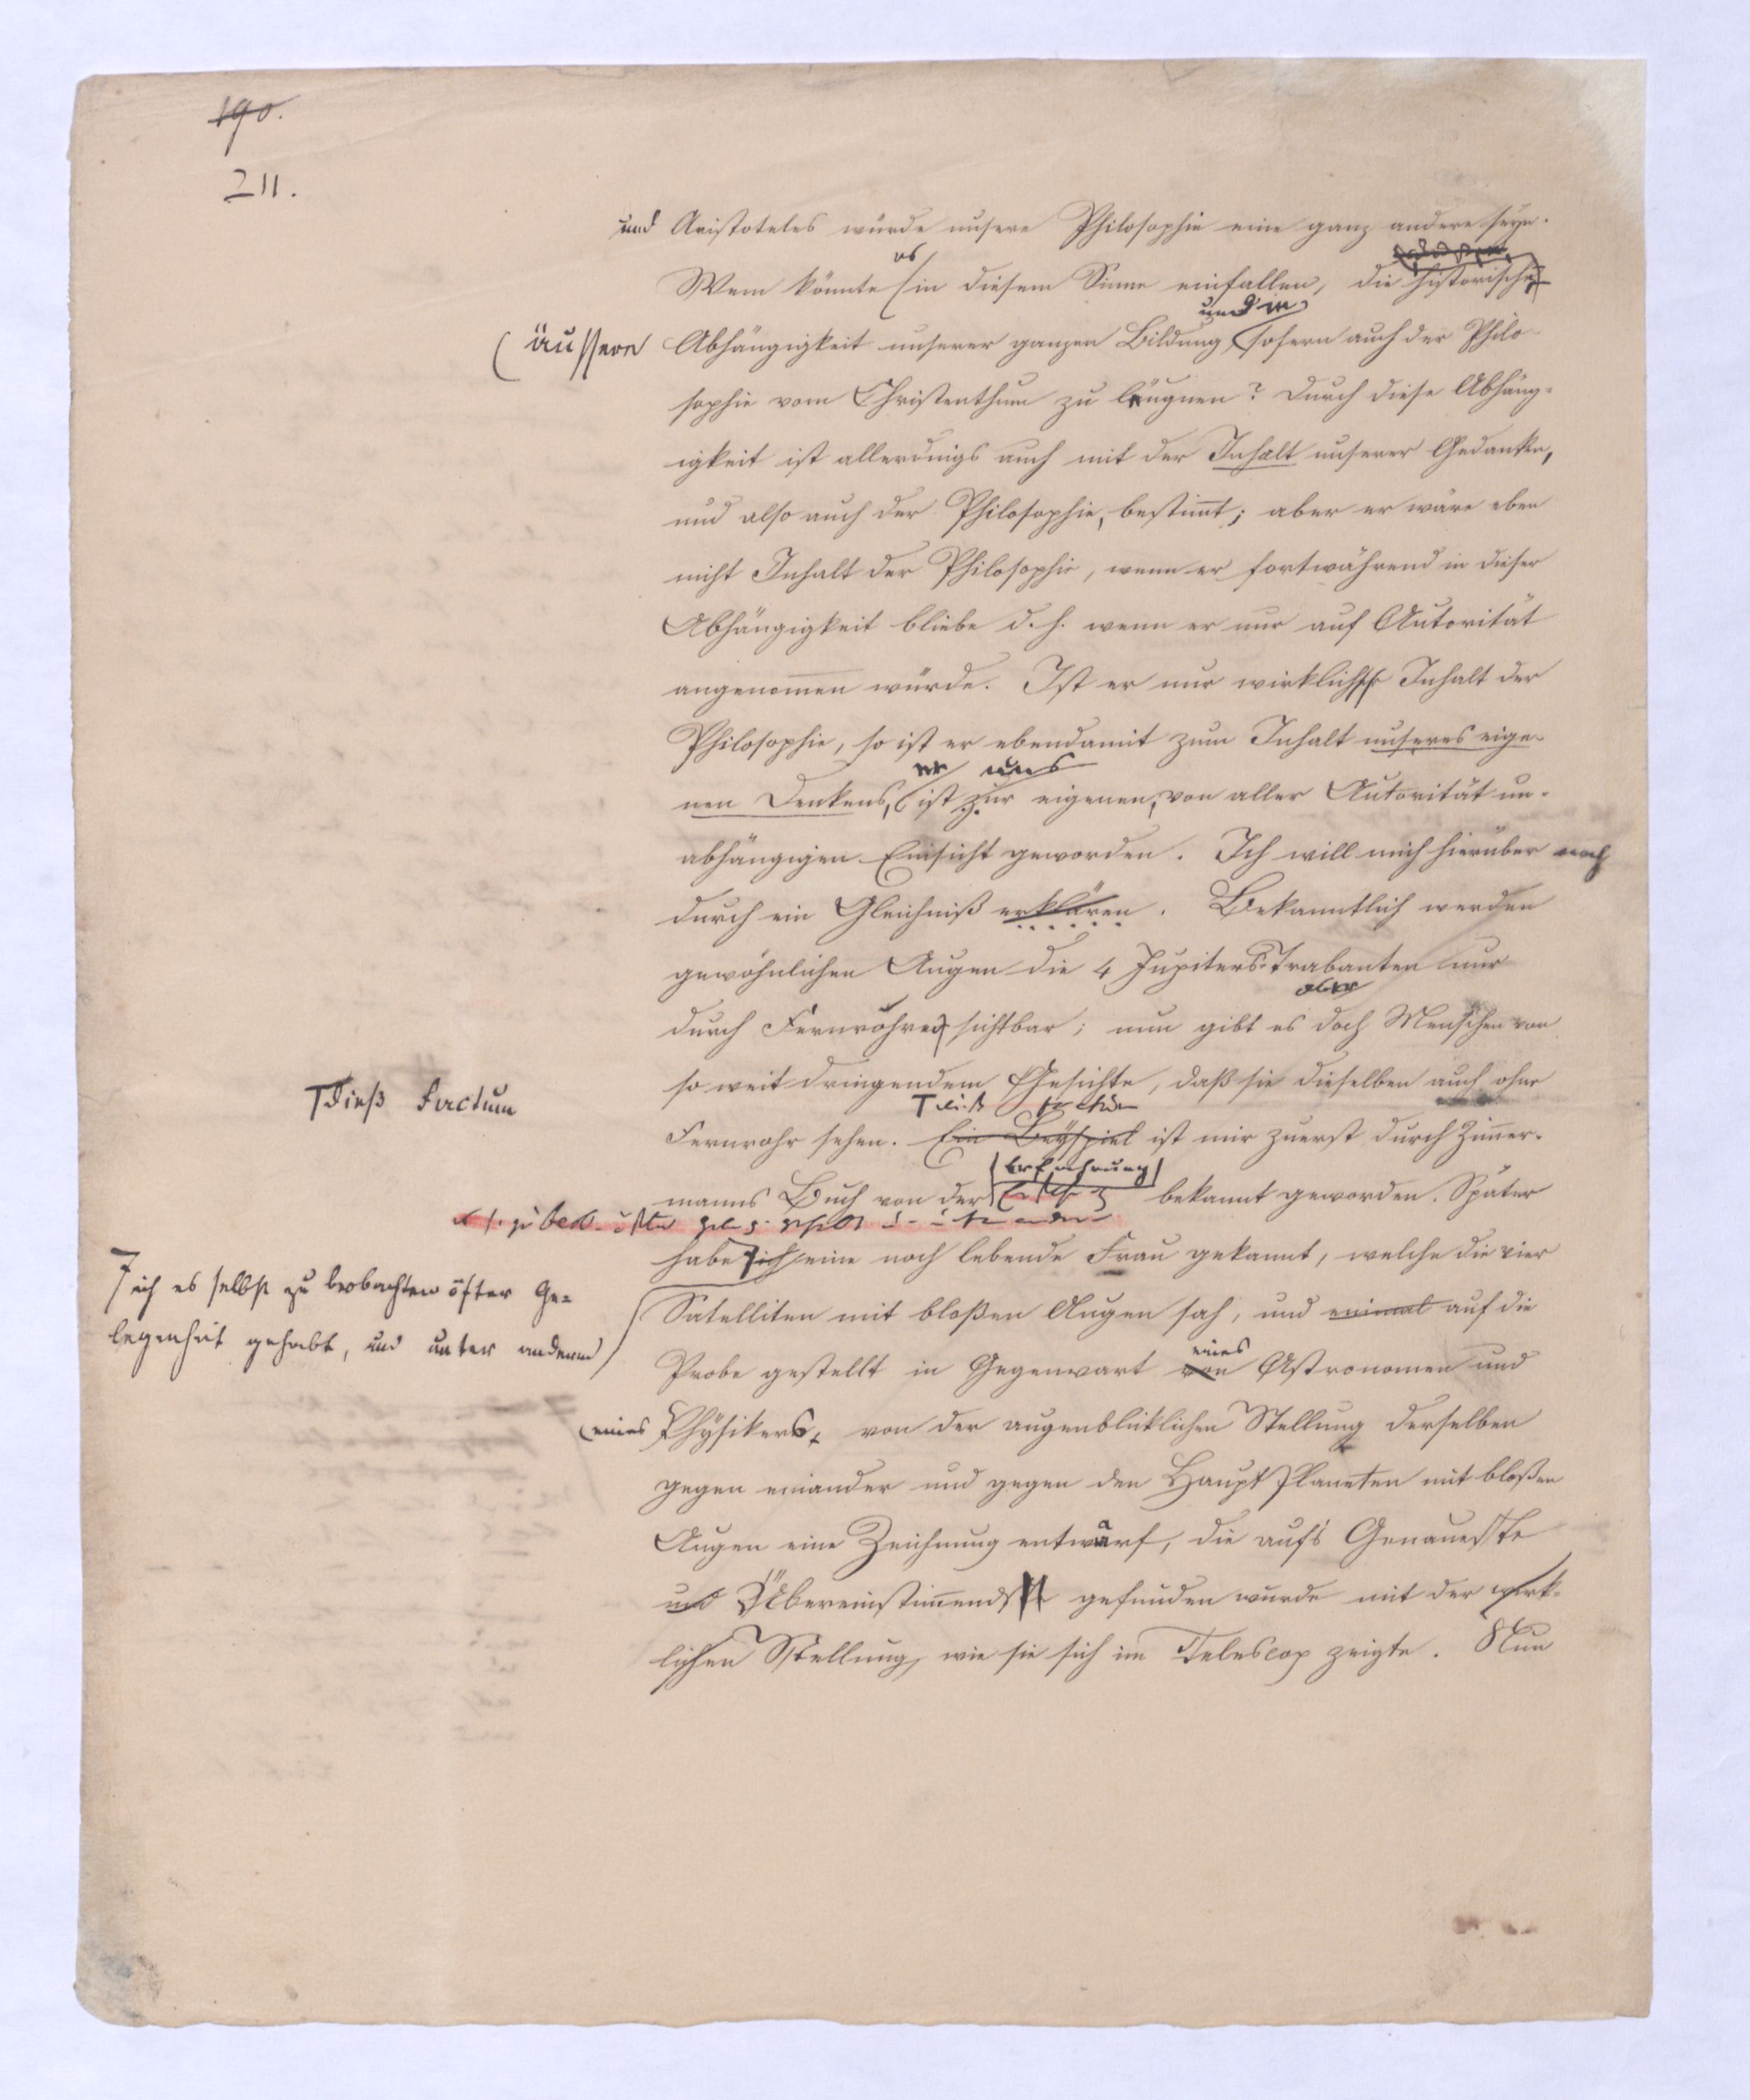 190.
211.
und Aristoteles würde unsere Philosophie eine ganz andere seyn.
es
Wem könnte in diesem Sinne einfallen, die historische
und in
(äussere Abhängigkeit unserer ganzen Bildung, sofern auch der Philo-
sophie vom Christenthum zu läugnen? Durch diese Abhäng-
igkeit ist allerdings auch mit der Inhalt unserer Gedanken,
und also auch der Philosophie, bestim̄t; aber er wäre eben
nicht Inhalt der Philosophie, wenn er fortwährend in dieser
Abhängigkeit bliebe d. h. wenn er nur auf Autorität
angenom̄en würde. Ist er nur wirklich Inhalt der
Philosophie, so ist er ebendamit zum Inhalt unseres eige-
er uns
nen Denkens, ist zur eigenen, von aller Autorität un-
abhängigen Einsicht geworden. Ich will mich hierüber noch
durch ein Gleichniß erklären. Bekanntlich werden
gewöhnlichen Augen die 4 Jupiters-Trabanten nur
aber
durch Fernröhre sichtbar; nun gibt es doch Menschen von
so weit dringendem Gesichte, daß sie dieselben auch ohne
Dieß Factum
Dieß Factum
Fernrohr sehen. Ein Beyspiel ist mir zuerst durch Zim̄er-
Erfahrung
manns Buch von der bekannt geworden. Später
habe ich eine noch lebende Frau gekannt, welche die vier
ich es selbst zu beobachten öfter Ge-
legenheit gehabt, und unter anderm
Satelliten mit bloßen Augen sah, und einmal auf die
eines
Probe gestellt in Gegenwart von Astronomen und
(eines Physikers, von der augenblicklichen Stellung derselben
gegen einander und gegen den Haupt Planeten mit bloßen
Augen eine Zeichnung entwarf, die aufs Genaueste
und Übereinstim̄end gefunden wurde mit der wirk-
lichen Stellung, wie sie sich im Telescop zeigte. Nun